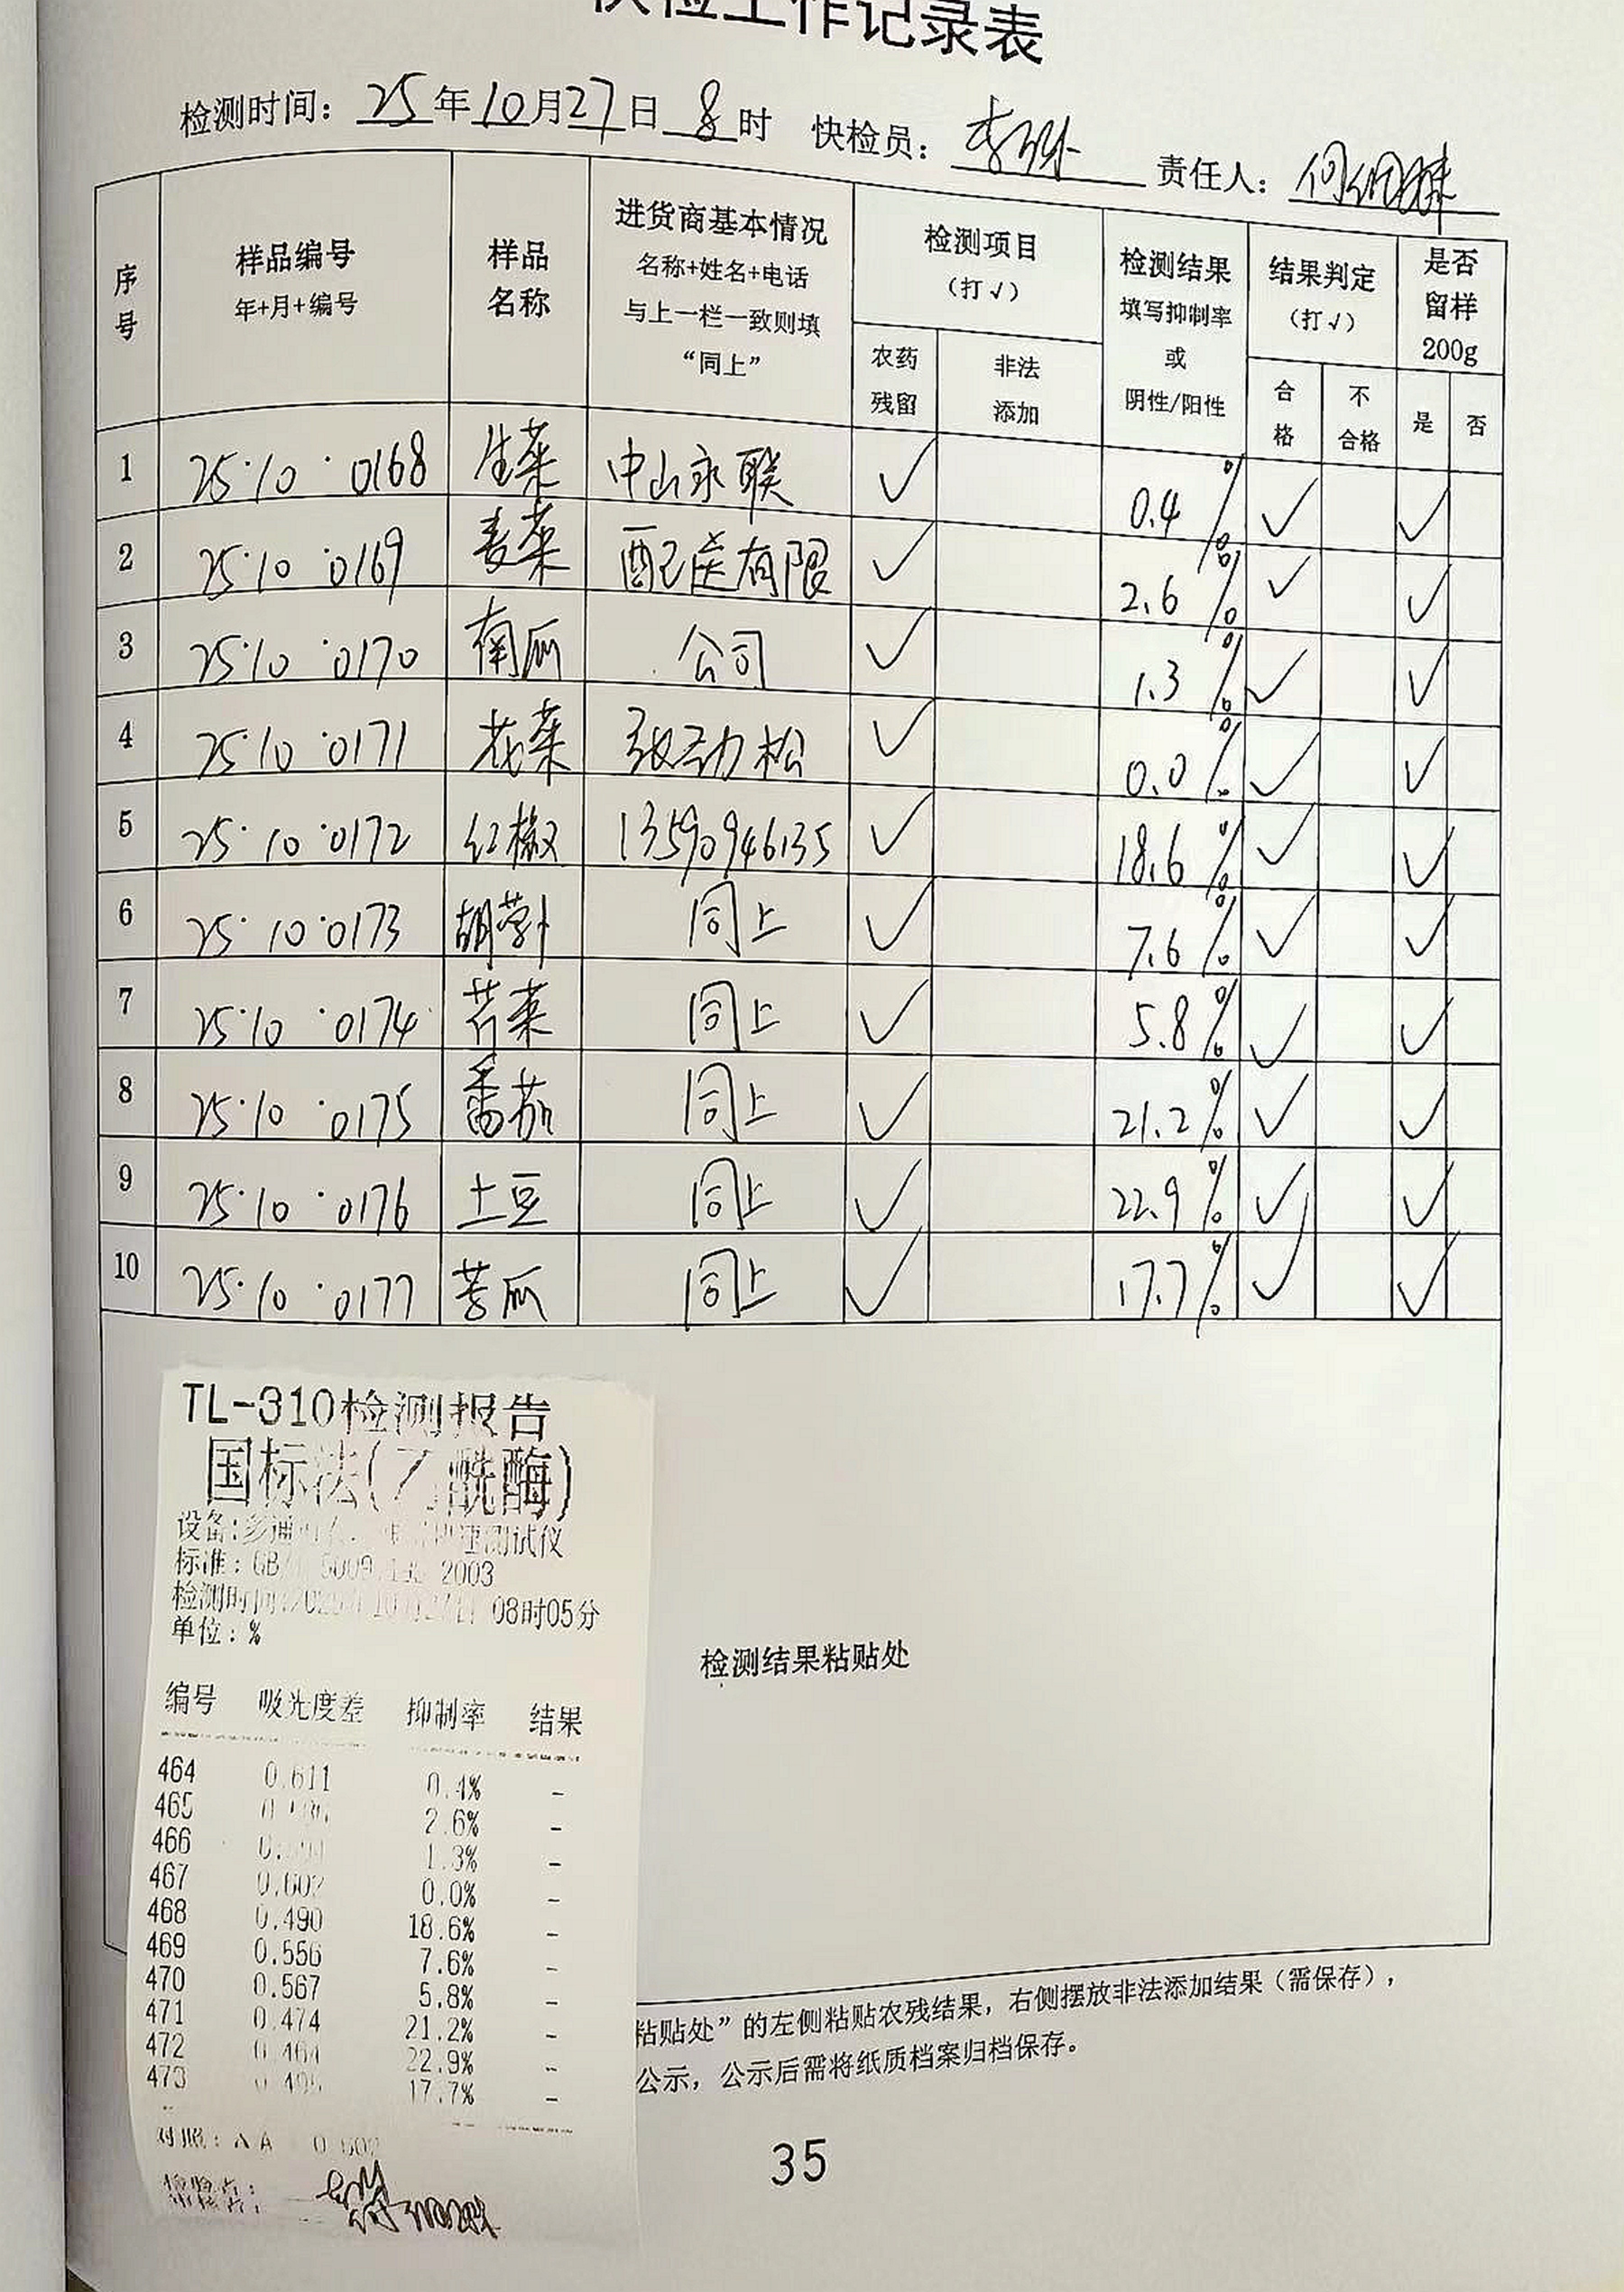 快检工作记录表
检测时间：25年10月27日8时 快检员： 责任人：
序号 样品编号 年+月+编号 样品名称 进货商基本情况 名称+姓名+电话 与上一栏一致则填“同上” 检测项目（打√） 农药残留 非法添加 检测结果 填写抑制率或阴性/阳性 结果判定（打√） 合格 不合格 是否留样200g 是 否
1 25·10·0168 生菜 中山永联 √ 0.4% √ √
2 25·10·0169 麦菜 配送有限 √ 2.6% √ √
3 25·10·0170 南瓜 公司 √ 1.3% √ √
4 25·10·0171 花菜 劲松 √ 0.0% √ √
5 25·10·0172 红椒 13590946135 √ 18.6% √ √
6 25·10·0173 胡萝卜 同上 √ 7.6% √ √
7 25·10·0174 芹菜 同上 √ 5.8% √ √
8 25·10·0175 番茄 同上 √ 21.2% √ √
9 25·10·0176 土豆 同上 √ 22.9% √ √
10 25·10·0177 苦瓜 同上 √ 17.7% √ √
TL-310检测报告
国标法(乙酰酶)
设备:多通 测试仪
标准: 2003
检测时间: 08时05分
单位:%
检测结果粘贴处
编号 吸光度差 抑制率 结果
464 0.611 0.4% -
465 2.6% -
466 1.3% -
467 0.602 0.0% -
468 0.490 18.6% -
469 0.556 7.6% -
470 0.567 5.8% -
471 0.474 21.2% -
472 22.9% -
473 17.7% -
对照:
检验者:
审核者:
粘贴处”的左侧粘贴农残结果，右侧摆放非法添加结果（需保存），
公示，公示后需将纸质档案归档保存。
35